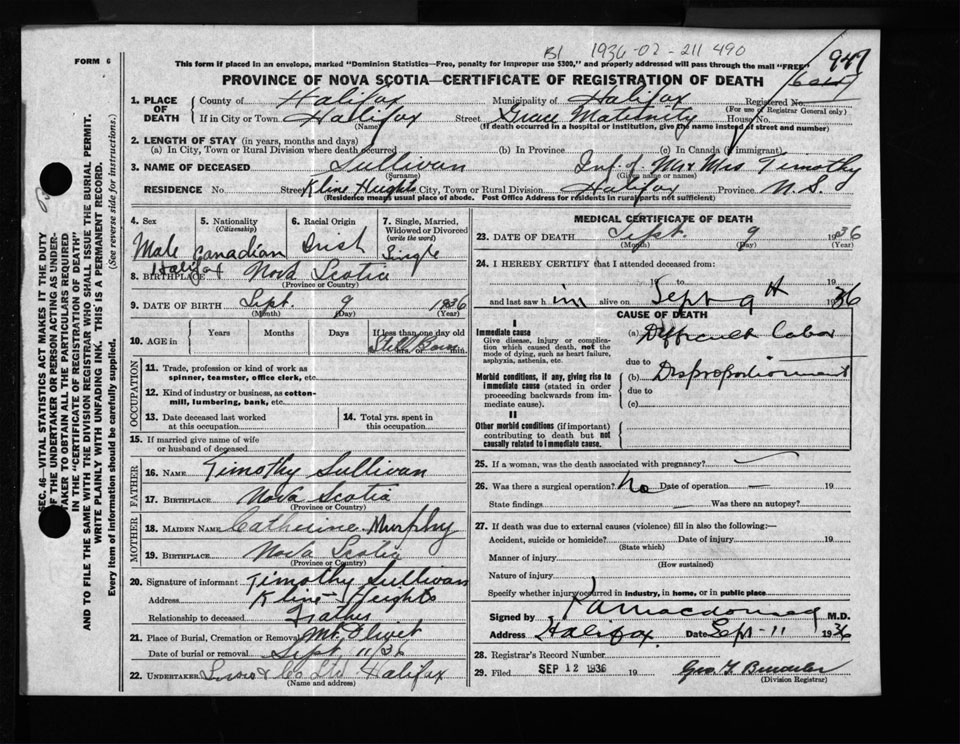 B1 1936-02-211490
FORM 6
This form if placed in an envelope, marked "Dominion Statistics—Free, penalty for improper use $300," and properly addressed will pass through the mail "FREE"
947
PROVINCE OF NOVA SCOTIA—CERTIFICATE OF REGISTRATION OF DEATH
1. PLACE OF DEATH
County of Halifax Municipality of Halifax Registered No.
(For use of Registrar General only)
If in City or Town Halifax Street Grace Maternity House No.
(Name) (If death occurred in a hospital or institution, give the name instead of street and number)
2. LENGTH OF STAY (in years, months and days)
(a) In City, Town or Rural Division where death occurred (b) In Province (c) In Canada (if immigrant)
3. NAME OF DECEASED Sullivan Inf. of Mr & Mrs Timothy
(Surname) (Given name or names)
RESIDENCE No. Street Kline Heights City, Town or Rural Division Halifax Province N.S.
(Residence means usual place of abode. Post Office Address for residents in rural parts not sufficient)
4. Sex Male
5. Nationality (Citizenship) Canadian
6. Racial Origin Irish
7. Single, Married, Widowed or Divorced (write the word) Single
8. BIRTHPLACE Halifax Nova Scotia
(Province or Country)
9. DATE OF BIRTH Sept. 9 1936
(Month) (Day) (Year)
10. AGE in Years Months Days If less than one day old
Still Born
hrs. or min.
OCCUPATION
11. Trade, profession or kind of work as spinner, teamster, office clerk, etc.
12. Kind of industry or business, as cotton-mill, lumbering, bank, etc.
13. Date deceased last worked at this occupation
14. Total yrs. spent in this occupation
15. If married give name of wife or husband of deceased
FATHER
16. NAME Timothy Sullivan
17. BIRTHPLACE Nova Scotia
(Province or Country)
MOTHER
18. MAIDEN NAME Catherine Murphy
19. BIRTHPLACE Nova Scotia
(Province or Country)
20. Signature of informant Timothy Sullivan
Address Kline Heights
Relationship to deceased Father
21. Place of Burial, Cremation or Removal Mt. Olivet
Date of burial or removal Sept 11/36
22. UNDERTAKER & Co Ltd Halifax
(Name and address)
MEDICAL CERTIFICATE OF DEATH
23. DATE OF DEATH Sept. 9 1936
(Month) (Day) (Year)
24. I HEREBY CERTIFY that I attended deceased from:
19 to 19
and last saw h im alive on Sept 9th 1936
CAUSE OF DEATH
I
Immediate cause
Give disease, injury or complication which caused death, not the mode of dying, such as heart failure, asphyxia, asthenia, etc.
(a) Difficult labor
due to
Morbid conditions, if any, giving rise to immediate cause (stated in order proceeding backwards from immediate cause).
(b) Disproportionment
due to
(c)
II
Other morbid conditions (if important) contributing to death but not causally related to immediate cause.
25. If a woman, was the death associated with pregnancy?
26. Was there a surgical operation? No Date of operation — 19
State findings — Was there an autopsy?
27. If death was due to external causes (violence) fill in also the following:—
Accident, suicide or homicide? Date of injury 19
(State which)
Manner of injury
(How sustained)
Nature of injury
Specify whether injury occurred in industry, in home, or in public place
Signed by Macdonald M.D.
Address Halifax Date Sept 11 1936
28. Registrar's Record Number
29. Filed SEP 12 1936 19
(Division Registrar)
SEC. 46—VITAL STATISTICS ACT MAKES IT THE DUTY
OF THE UNDERTAKER OR PERSON ACTING AS UNDERTAKER TO OBTAIN ALL THE PARTICULARS REQUIRED
IN THE "CERTIFICATE OF REGISTRATION OF DEATH"
AND TO FILE THE SAME WITH THE DIVISION REGISTRAR WHO SHALL ISSUE THE BURIAL PERMIT.
WRITE PLAINLY WITH UNFADING INK. THIS IS A PERMANENT RECORD.
Every item of information should be carefully supplied. (See reverse side for instructions.)